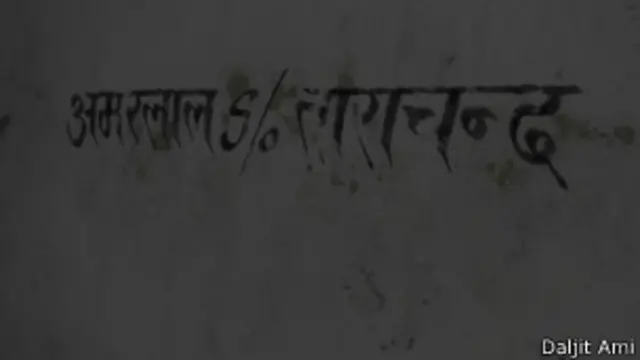 अमरलाल S/o ताराचन्द
Daljit Ami